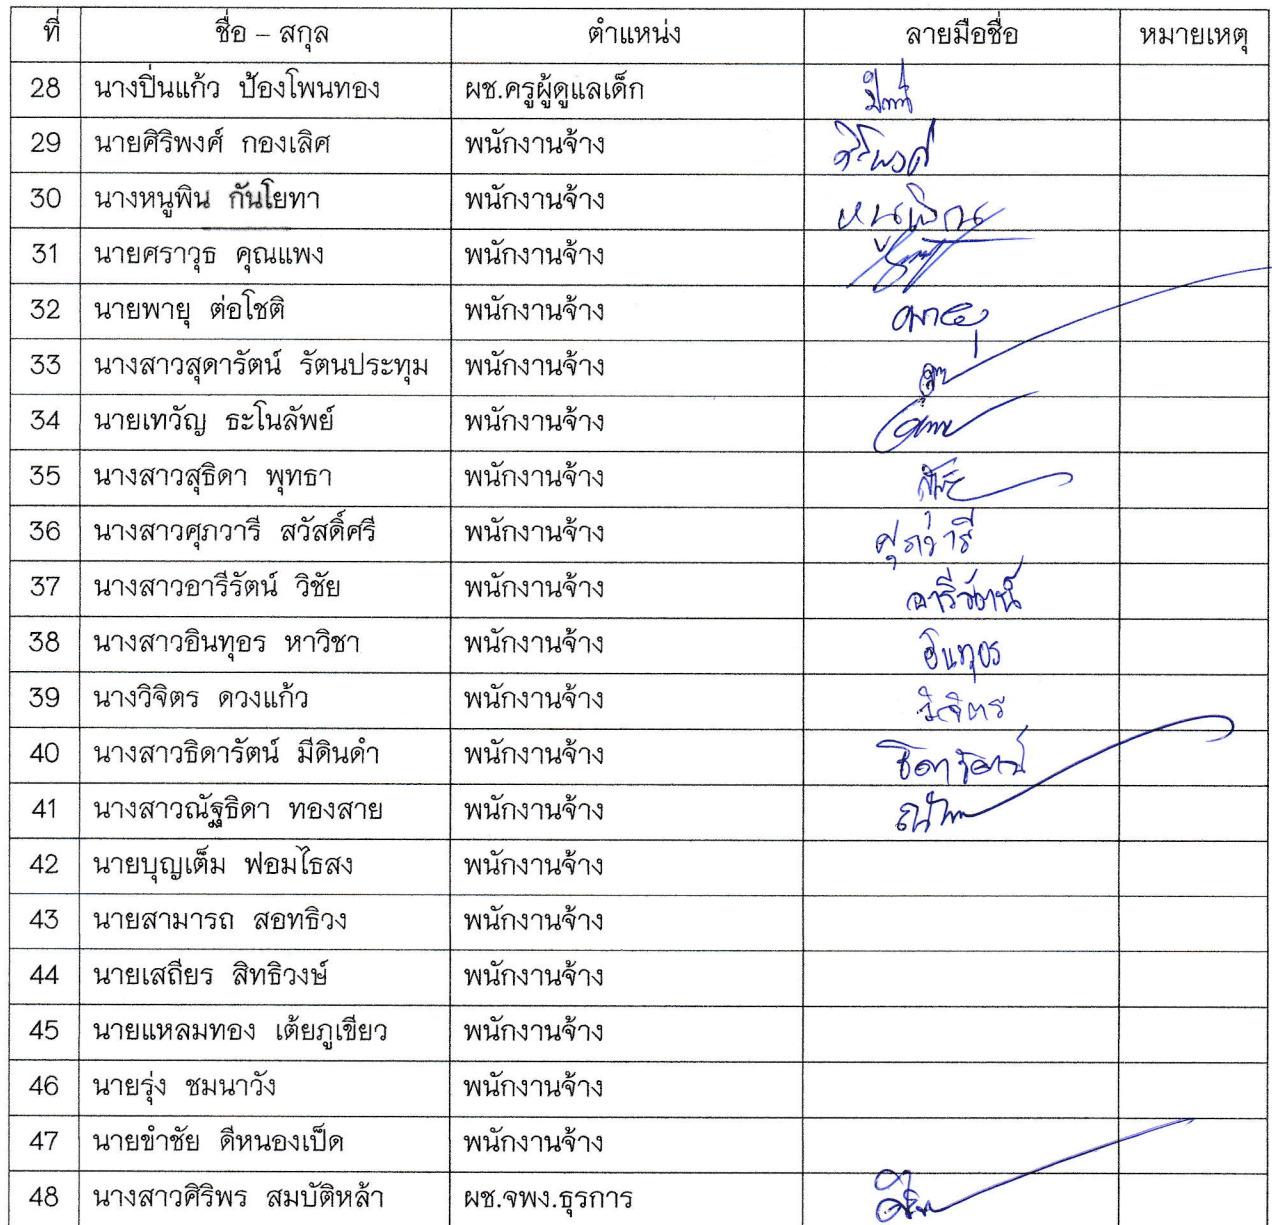 ที่ ชื่อ – สกุล ตำแหน่ง ลายมือชื่อ หมายเหตุ
28 นางปิ่นแก้ว ป้องโพนทอง ผช.ครูผู้ดูแลเด็ก
29 นายศิริพงศ์ กองเลิศ พนักงานจ้าง ศิริพงศ์
30 นางหนูพิน กันโยทา พนักงานจ้าง
31 นายศราวุธ คุณแพง พนักงานจ้าง
32 นายพายุ ต่อโชติ พนักงานจ้าง พายุ
33 นางสาวสุดารัตน์ รัตนประทุม พนักงานจ้าง
34 นายเทวัญ ธะโนลัพย์ พนักงานจ้าง
35 นางสาวสุธิดา พุทธา พนักงานจ้าง
36 นางสาวศุภวารี สวัสดิ์ศรี พนักงานจ้าง ศุภวารี
37 นางสาวอารีรัตน์ วิชัย พนักงานจ้าง อารีรัตน์
38 นางสาวอินทุอร หาวิชา พนักงานจ้าง อินทุอร
39 นางวิจิตร ดวงแก้ว พนักงานจ้าง วิจิตร
40 นางสาวธิดารัตน์ มีดินดำ พนักงานจ้าง ธิดารัตน์
41 นางสาวณัฐธิดา ทองสาย พนักงานจ้าง
42 นายบุญเต็ม ฟอมไธสง พนักงานจ้าง
43 นายสามารถ สอทธิวง พนักงานจ้าง
44 นายเสถียร สิทธิวงษ์ พนักงานจ้าง
45 นายแหลมทอง เต้ยภูเขียว พนักงานจ้าง
46 นายรุ่ง ชมนาวัง พนักงานจ้าง
47 นายขำชัย ดีหนองเป็ด พนักงานจ้าง
48 นางสาวศิริพร สมบัติหล้า ผช.จพง.ธุรการ